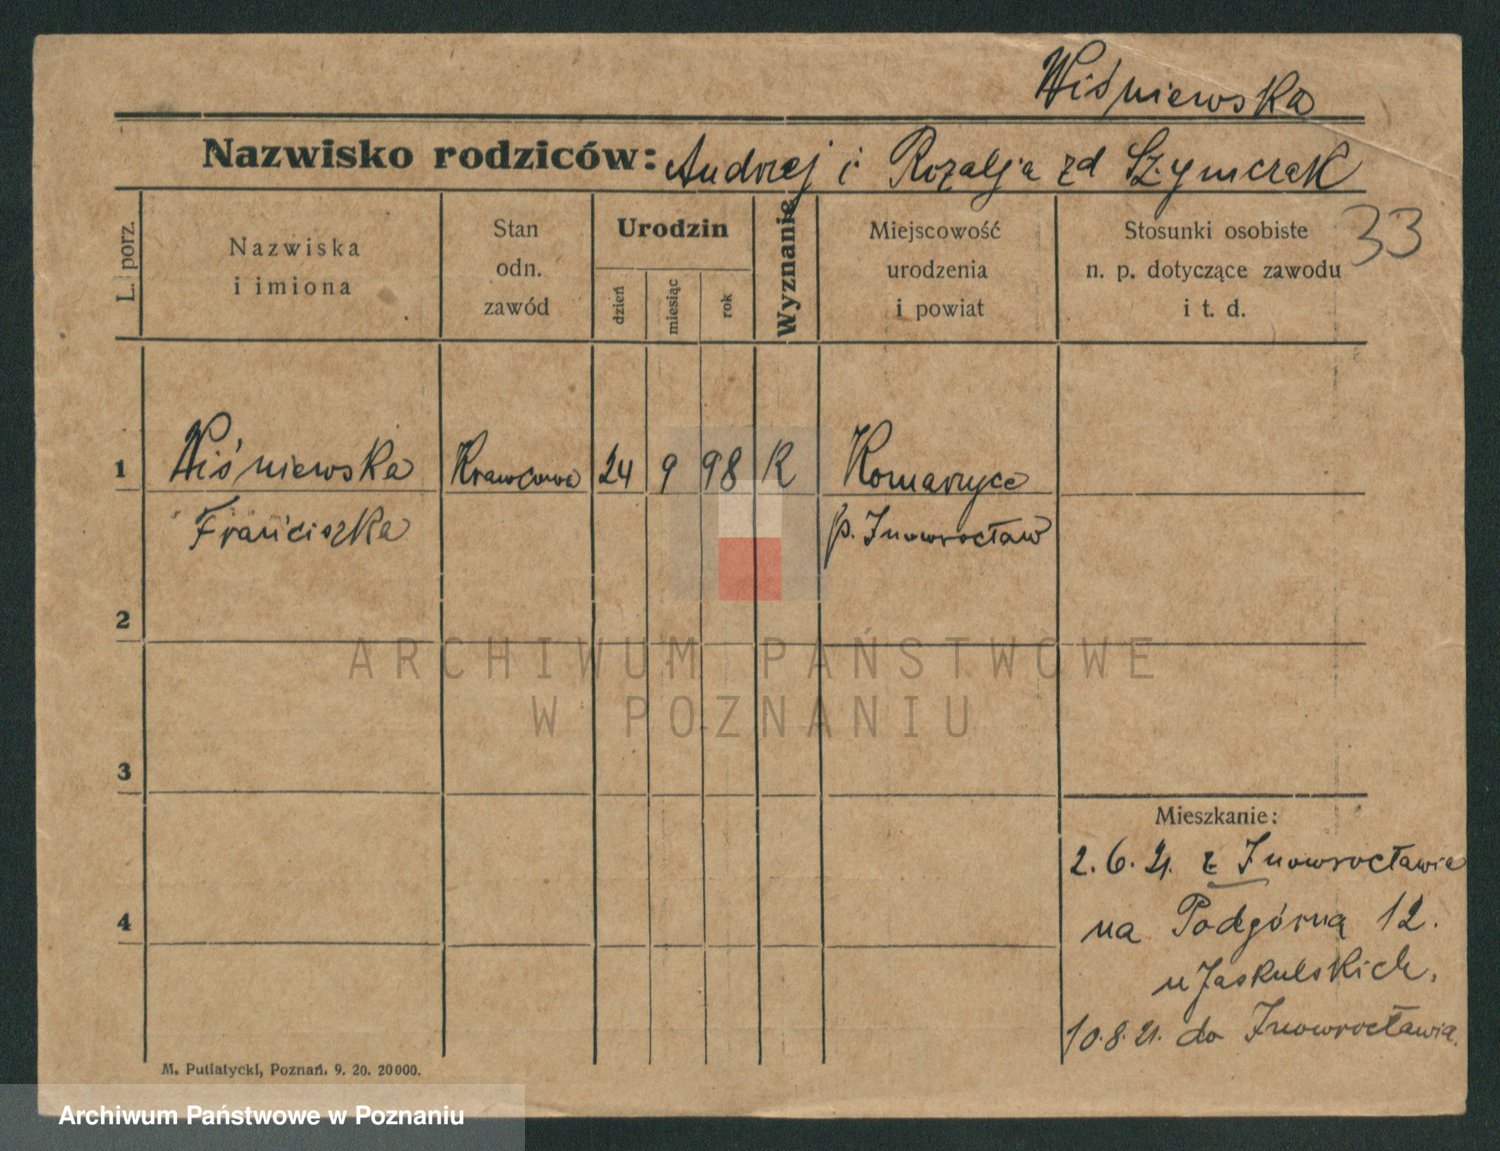 Wiśniewska
Nazwisko rodziców: Andrzej i Rozalja zd Szymczak
33
L. porz.
Nazwiska
i imiona
Stan
odn.
zawód
Urodzin
dzień
miesiąc
rok
Wyznanie
Miejscowość
urodzenia
i powiat
Stosunki osobiste
n. p. dotyczące zawodu
i t. d.
1 Wiśniewska Krawcowa 24 9 98 K Komaryce
Franciszka p. Inowrocław
2
ARCHIWUM PAŃSTWOWE
W POZNANIU
3
Mieszkanie:
2.6.21. z Inowrocławia
4 na Podgórną 12.
u Jaskulskich.
10.8.21. do Inowrocławia.
M. Putiatycki, Poznań. 9. 20. 20000.
Archiwum Państwowe w Poznaniu